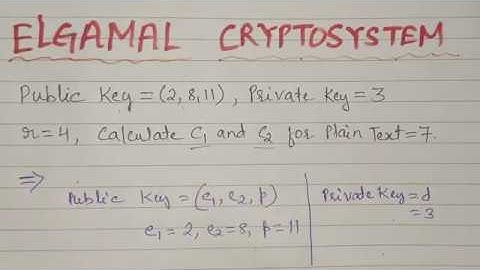 ELGAMAL CRYPTOSYSTEM
Public Key = (2,8,11), Private Key = 3
r=4, Calculate C1 and C2 for Plain Text = 7.
⇒
Public Key = (e1, e2, p)
e1 = 2, e2 = 8, p = 11
Private Key = d
= 3